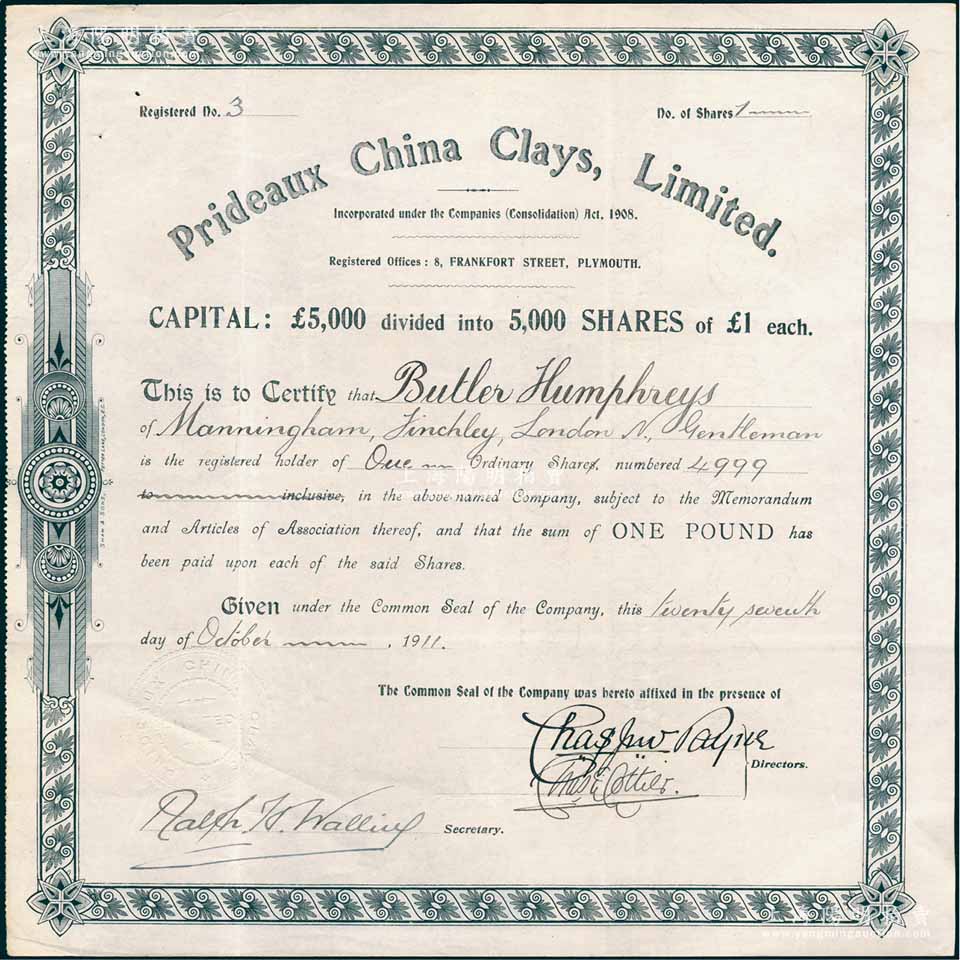 上海陽明拍賣
Registered No. 3
No. of Shares 1
Prideaux China Clays, Limited.
Incorporated under the Companies (Consolidation) Act, 1908.
Registered Offices: 8, FRANKFORT STREET, PLYMOUTH.
CAPITAL: £5,000 divided into 5,000 SHARES of £1 each.
This is to Certify that Butler Humphreys
of Manningham, Finchley, London N., Gentleman
is the registered holder of One Ordinary Shares, numbered 4999
上海陽明拍賣
to inclusive, in the above-named Company, subject to the Memorandum
and Articles of Association thereof, and that the sum of ONE POUND has
been paid upon each of the said Shares.
Given under the Common Seal of the Company, this twenty seventh
day of October, 1911.
The Common Seal of the Company was hereto affixed in the presence of
Payne
Directors.
Ralph H. Walling
Secretary.
CHINA
上海陽明拍賣
www.yangmingauction.com